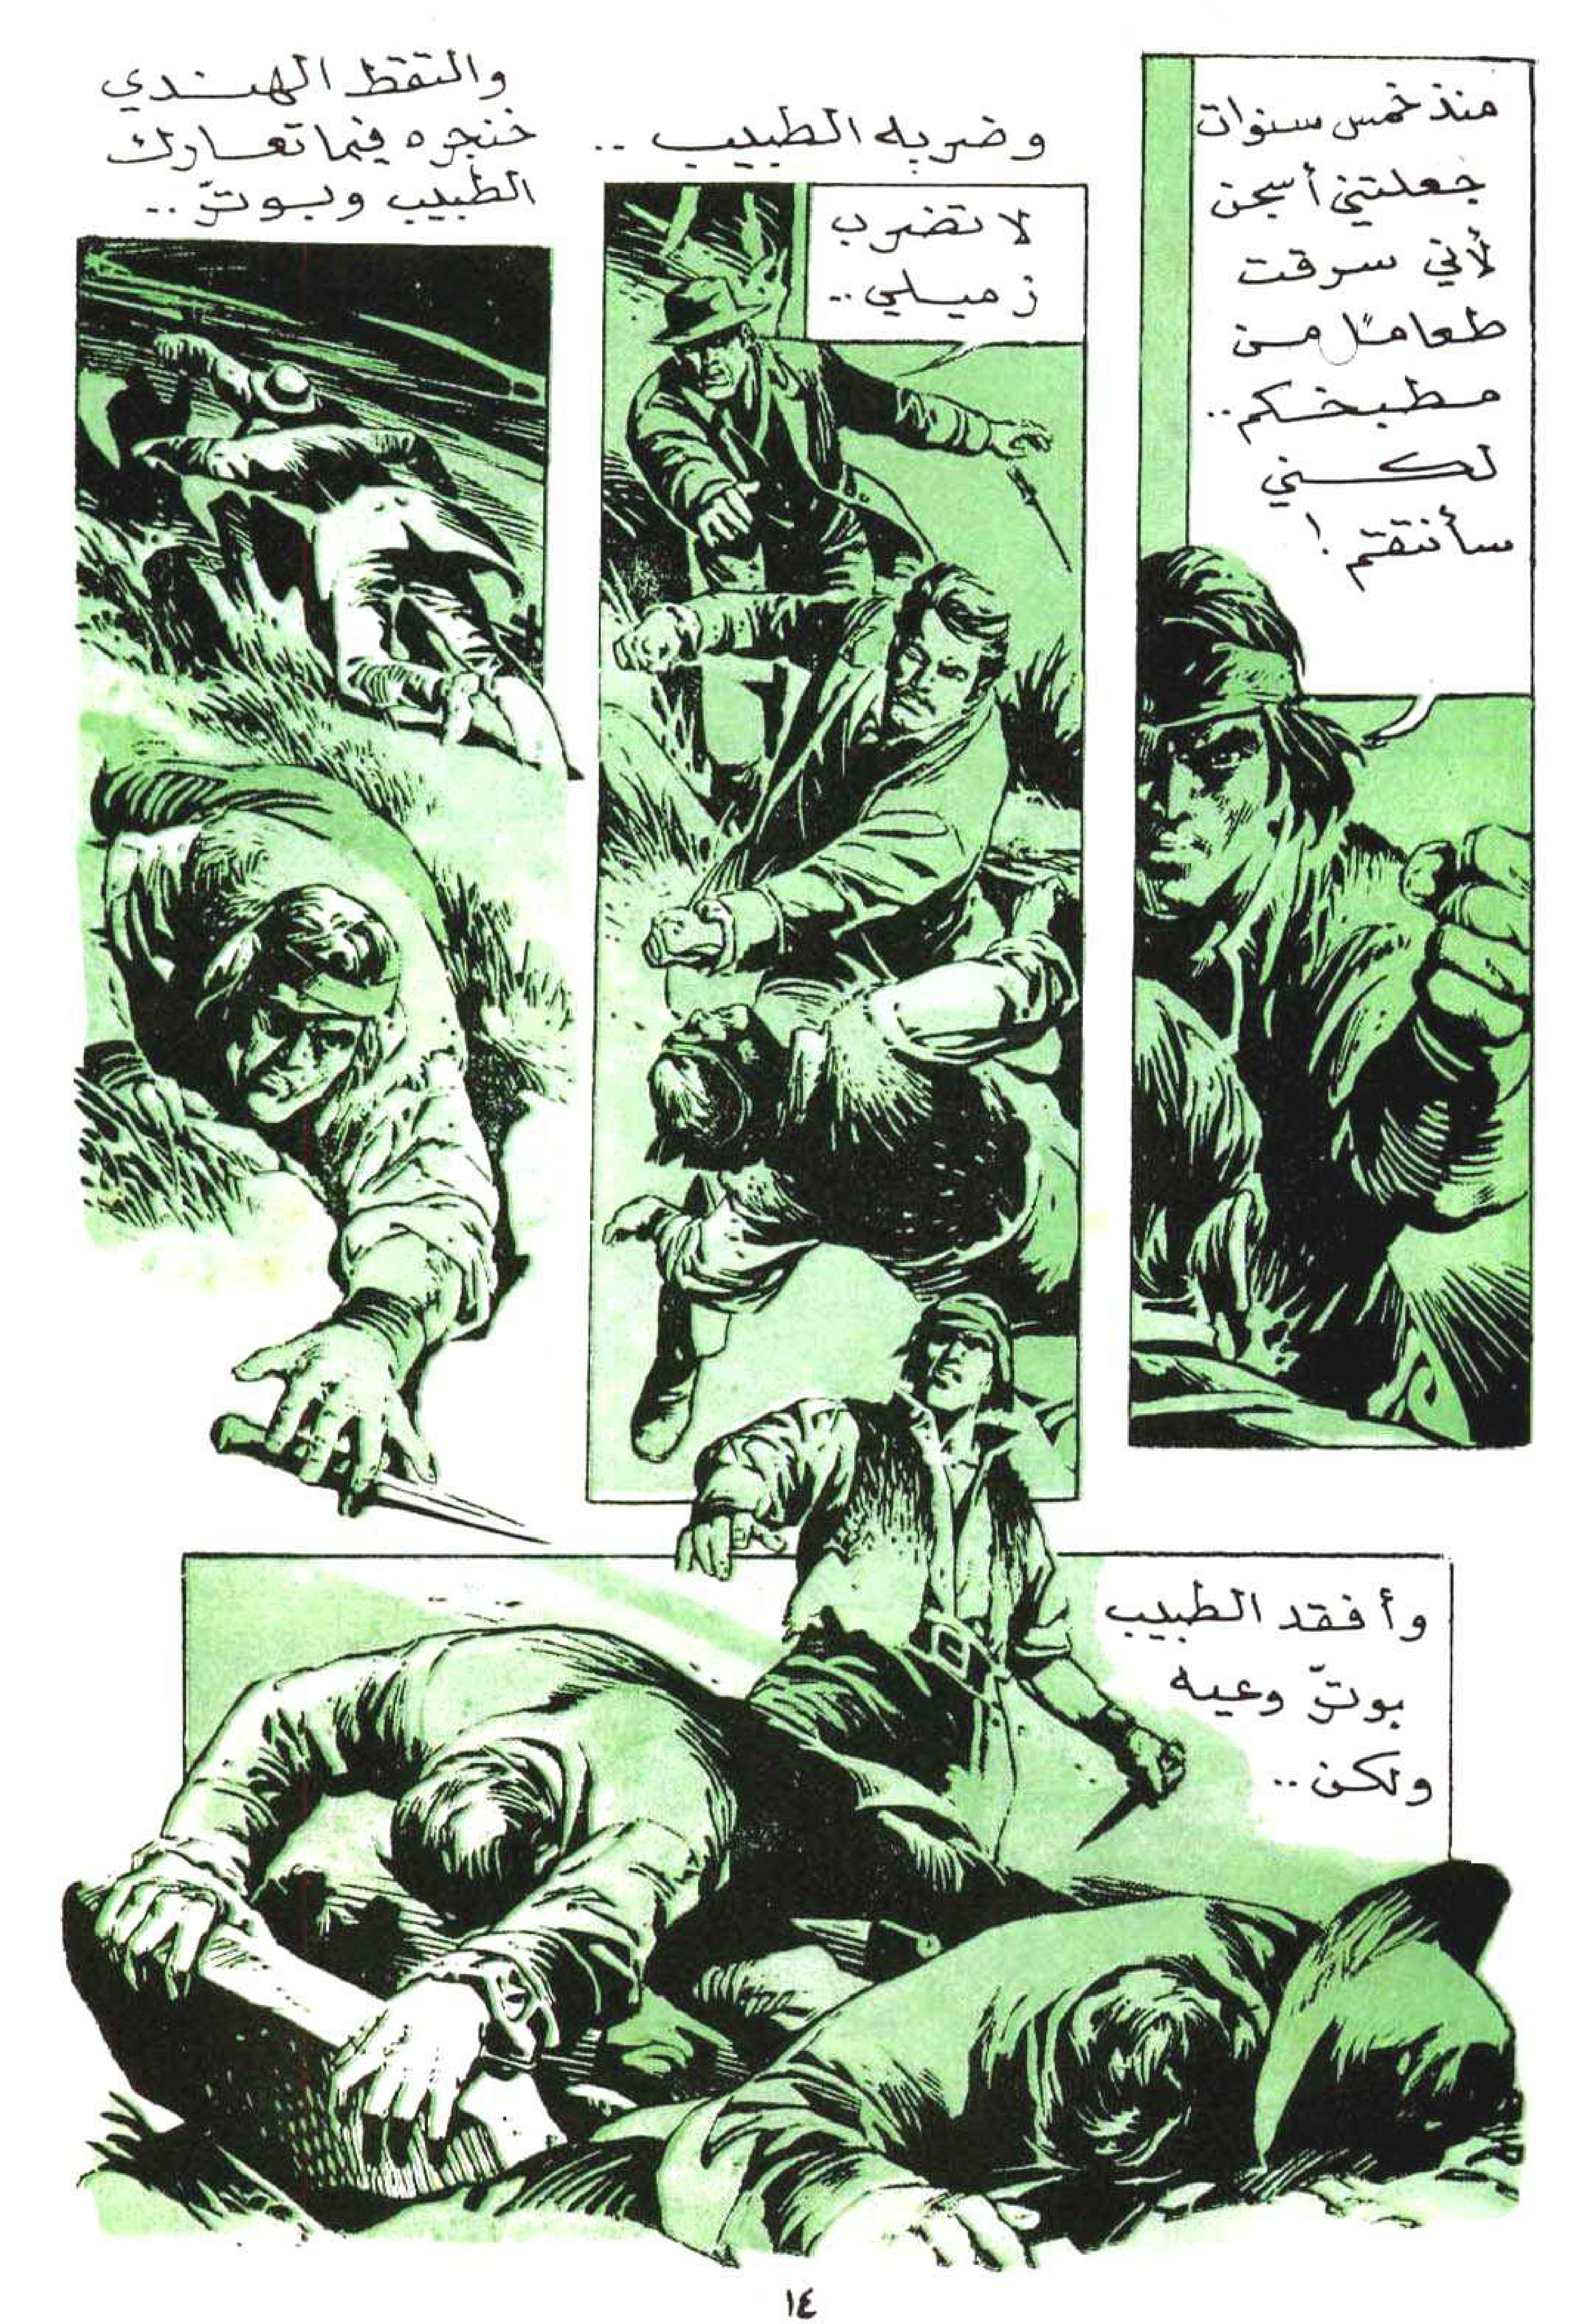 منذ خمس سنوات
جعلتني أسجن
لأني سرقت
طعامًا من
مطبخكم..
لكني
سأنتقم!
وضربه الطبيب ..
لا تضرب
زميلي ..
والتقط الهندي
خنجره فيما تعارك
الطبيب وبوتر ..
وأفقد الطبيب
بوتر وعيه
ولكن ..
١٤